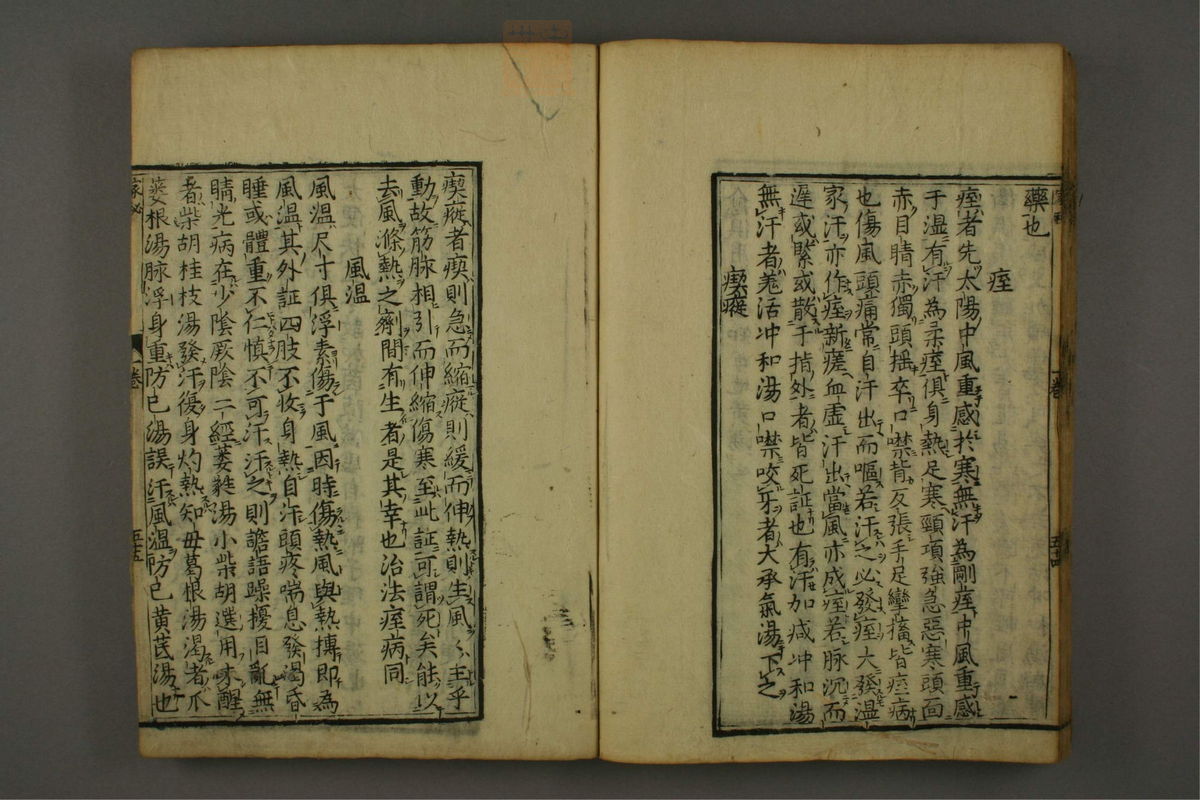 藥也
痓
痓者先太陽中風重感於寒無汗為剛痓中風重感
于温有汗為柔痓俱身熱足寒頸項強急惡寒頭面
赤目睛赤獨頭揺卒口噤背反張手足攣搐皆痓病
也傷風頭痛常自汗出而嘔若汗之必發痓大發温
家汗亦作痓新瘥血虚汗出當風亦成痓若脉沉而
遅或緊或散于指外者皆死証也有汗加减冲和湯
無汗者羗活冲和湯口噤咬牙者大承氣湯下之
瘈瘲
瘈瘲者瘈則急而縮瘲則緩而伸熱則生風〻主乎
動故筋脉相引而伸縮傷寒至此証可謂死矣能以
去風滌熱之劑間有生者是其幸也治法痓病同
風温
風温尺寸俱浮素傷于風因時傷熱風與熱摶即為
風温其外証四肢不收身熱自汗頭疼喘息發渴昏
睡或體重不仁慎不可汗汗之則譫語躁擾目亂無
睛光病在少陰厥陰二經萎蕤湯小柴胡選用未醒
者柴胡桂枝湯發汗復身灼熱知毋葛根湯渴者瓜
蔞根湯脉浮身重防已湯誤汗風温防已黄茋湯也
一卷
五十五